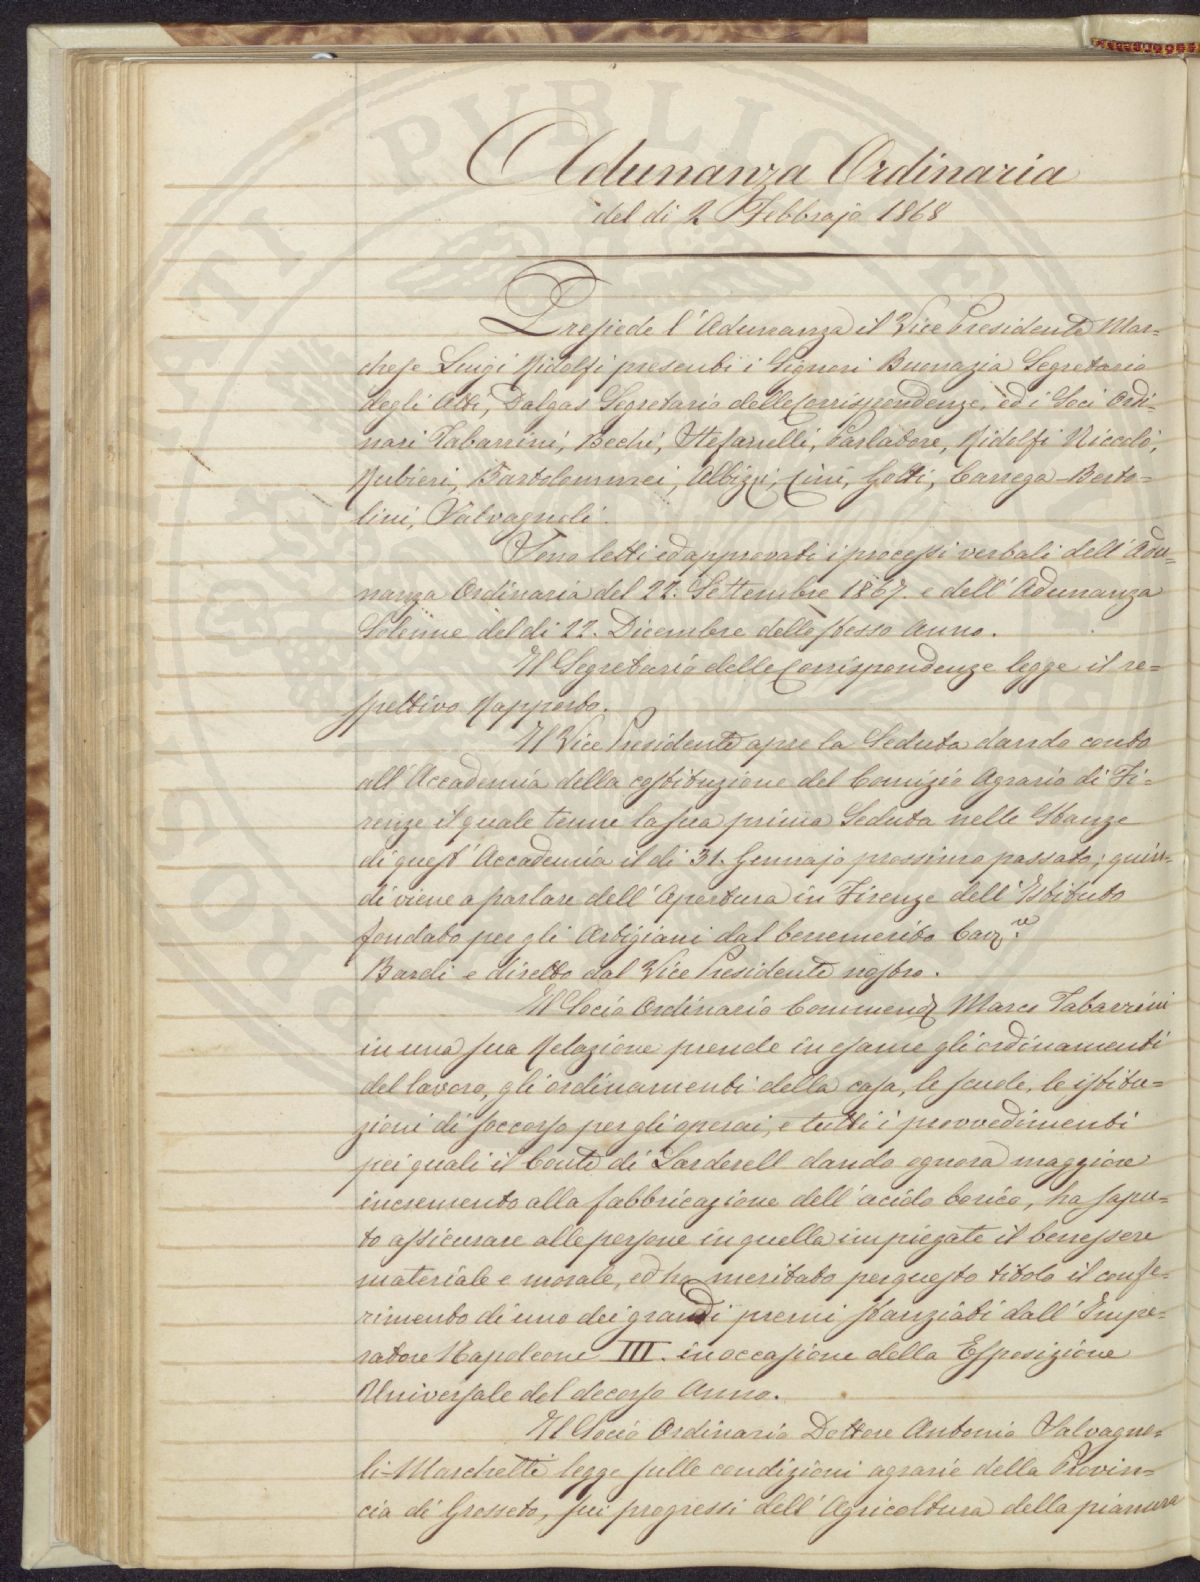 Adunanza Ordinaria
del dì 2 Febbrajo 1868
Presiede l'Adunanza il Vice Presidente Mar-
chese Luigi Ridolfi presenti i Signori Buonazia Segretario
degli Atti, Dalgas Segretario delle Corrispondenze, ed i Soci Ordi-
nari Tabarrini, Bechi, Stefanelli, Parlatore, Ridolfi Niccolò,
Rubieri, Bartolommei, Albizzi, Cini, Gotti, Carrega-Berto-
lini, Salvagnoli.
Sono letti ed approvati i processi verbali dell'Adu-
nanza Ordinaria del 22. Settembre 1867. e dell'Adunanza
Solenne del dì 22. Dicembre dello stesso Anno.
Il Segretario delle Corrispondenze legge il re-
spettivo Rapporto.
Il Vice Presidente apre la Seduta dando conto
all'Accademia della costituzione del Comizio Agrario di Fi-
renze il quale tenne la sua prima Seduta nelle Stanze
di quest'Accademia il dì 31. Gennajo prossimo passato; quin-
di viene a parlare dell'Apertura in Firenze dell'Istituto
fondato per gli Artigiani dal benemerito Cav.re
Bardi e diretto dal Vice Presidente nostro.
Il Socio Ordinario Commend. Marco Tabarrini
in una sua Relazione prende in esame gli ordinamenti
del lavoro, gli ordinamenti della casa, le scuole, le istitu-
zioni di soccorso per gli operai, e tutti i provvedimenti
pei quali il Conte di Larderell dando ognora maggiore
incremento alla fabbricazione dell'acido borico, ha sapu-
to assicurare alle persone in quella impiegate il benessere
materiale e morale, ed ha meritato per questo titolo il confe-
rimento di uno dei grandi premi stanziati dall'Impe-
ratore Napoleone III. in occasione della Esposizione
Universale del decorso Anno.
Il Socio Ordinario Dottore Antonio Salvagno-
li-Marchetti legge sulle condizioni agrarie della Provin-
cia di Grosseto, sui progressi dell'Agricoltura della pianura